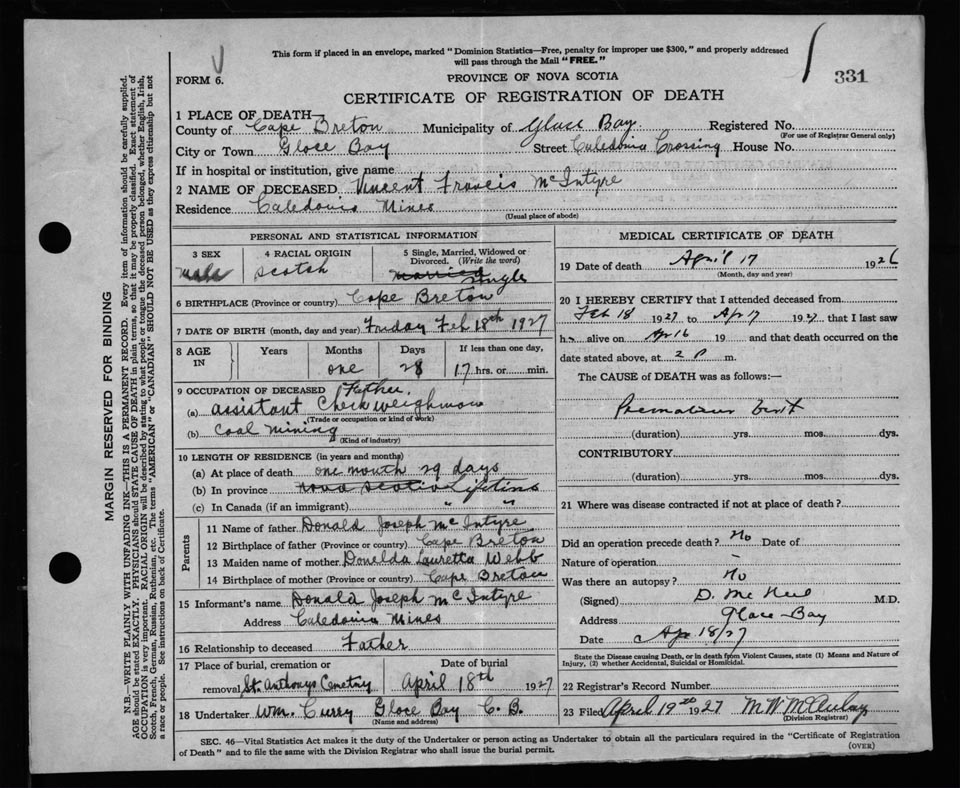 This form if placed in an envelope, marked "Dominion Statistics—Free, penalty for improper use $300," and properly addressed
will pass through the Mail "FREE."
331
FORM 6.
PROVINCE OF NOVA SCOTIA
CERTIFICATE OF REGISTRATION OF DEATH
1 PLACE OF DEATH—
County of Cape Breton Municipality of Glace Bay Registered No.
(For use of Registrar General only)
City or Town Glace Bay Street Caledonia Crossing House No.
If in hospital or institution, give name
2 NAME OF DECEASED Vincent Francis McIntyre
Residence Caledonia Mines
(Usual place of abode)
PERSONAL AND STATISTICAL INFORMATION
3 SEX 4 RACIAL ORIGIN 5 Single, Married, Widowed or
Divorced. (Write the word)
male Scotch married single
6 BIRTHPLACE (Province or country) Cape Breton
7 DATE OF BIRTH (month, day and year) Friday Feb 18th 1927
8 AGE IN Years Months Days If less than one day,
one 28 17 hrs. or min.
9 OCCUPATION OF DECEASED Father
(a) assistant Check weighman
(Trade or occupation or kind of work)
(b) Coal Mining
(Kind of industry)
10 LENGTH OF RESIDENCE (in years and months)
(a) At place of death one month 29 days
(b) In province Nova Scotia Lifetime
(c) In Canada (if an immigrant) " "
Parents
11 Name of father Donald Joseph McIntyre
12 Birthplace of father (Province or country) Cape Breton
13 Maiden name of mother Donelda Lauretta Webb
14 Birthplace of mother (Province or country) Cape Breton
15 Informant's name Donald Joseph McIntyre
Address Caledonia Mines
16 Relationship to deceased Father
17 Place of burial, cremation or Date of burial
removal St. Anthonys Cemetry April 18th 1927
18 Undertaker Wm. Curry Glace Bay C. B.
(Name and address)
MEDICAL CERTIFICATE OF DEATH
19 Date of death April 17 1926
(Month, day and year)
20 I HEREBY CERTIFY that I attended deceased from
Feb 18 1927 to Ap 17 1927 that I last saw
h alive on Ap 16 19 and that death occurred on the
date stated above, at 2 P m.
The CAUSE of DEATH was as follows:—
Premature birth
(duration) yrs. mos. dys.
CONTRIBUTORY
(duration) yrs. mos. dys.
21 Where was disease contracted if not at place of death?
Did an operation precede death? No Date of
Nature of operation –
Was there an autopsy? No
(Signed) D. McNeil M.D.
Address Glace-Bay
Date Ap 18/27
State the Disease causing Death, or in death from Violent Causes, state (1) Means and Nature of
Injury, (2) whether Accidental, Suicidal or Homicidal.
22 Registrar's Record Number
23 Filed April 19 1927 M W McAulay
(Division Registrar)
SEC. 46—Vital Statistics Act makes it the duty of the Undertaker or person acting as Undertaker to obtain all the particulars required in the "Certificate of Registration
of Death" and to file the same with the Division Registrar who shall issue the burial permit.
(OVER)
MARGIN RESERVED FOR BINDING
N.B.—WRITE PLAINLY WITH UNFADING INK—THIS IS A PERMANENT RECORD. Every item of information should be carefully supplied.
AGE should be stated EXACTLY. PHYSICIANS should STATE CAUSE OF DEATH in plain terms, so that it may be properly classified. Exact statement of
OCCUPATION is very important. RACIAL ORIGIN will be described by stating to what people or tongue the deceased person belonged, whether English, Irish,
Scotch, French, German, Russian, Ruthenian, etc. The terms "AMERICAN" or "CANADIAN" SHOULD NOT BE USED as they express citizenship but not
a race or people. See instructions on back of Certificate.